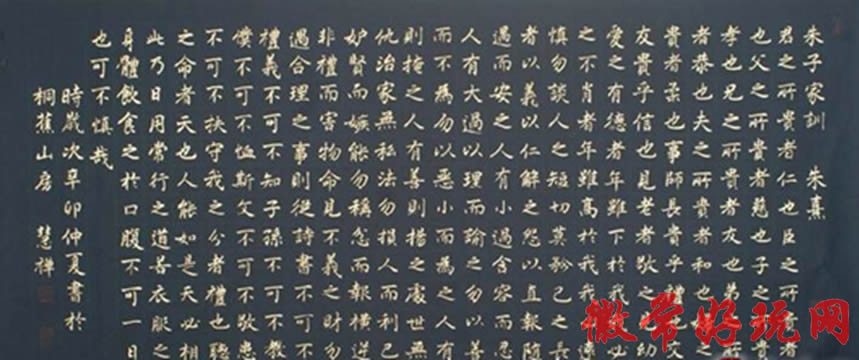 朱子家訓 朱熹
君之所貴者仁也臣之所貴
也父之所貴者慈也子之所貴
孝也兄之所貴者友也弟
者恭也夫之所貴者和也
貴者柔也事師長貴乎
友貴乎信也見老者敬之
愛之有德者年雖下於我
之不肖者年雖高於我我
慎勿談人之短切莫矜己之長
者以義以仁解之怨以直報隨
遇而安之人有小過含容而忍
人有大過以理而諭之勿以善
而不為勿以惡小而為之人
則掩之人有善則揚之處世無
仇治家無私法勿損人而利己
妒賢而嫉能勿稱忿而報橫逆
非禮而害物命見不義之財勿
遇合理之事則從詩書不可不
禮義不可不知子孫不可不教
僕不可不恤斯文不可不敬患
不可不扶守我之分者禮也聽
之命者天也人能如是天必相
此乃日用常行之道若衣服之
身體飲食之於口腹不可一日
也可不慎哉
時歲次辛卯仲夏書於
桐蕉山房 慧禅
徽常好玩网